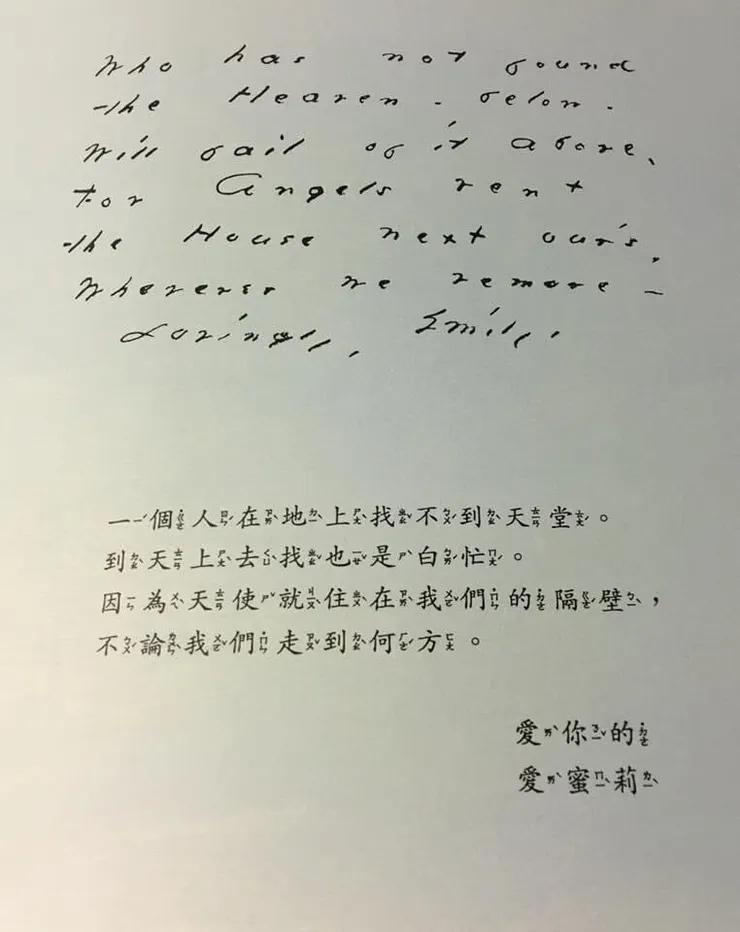 Who has not found
the Heaven - below -
Will fail of it above,
For Angels rent
the House next our's,
Wherever we remove -
Lovingly, Emily.
一個人在地上找不到天堂。
到天上去找也是白忙。
因為天使就住在我們的隔壁，
不論我們走到何方。
愛你的
愛蜜莉